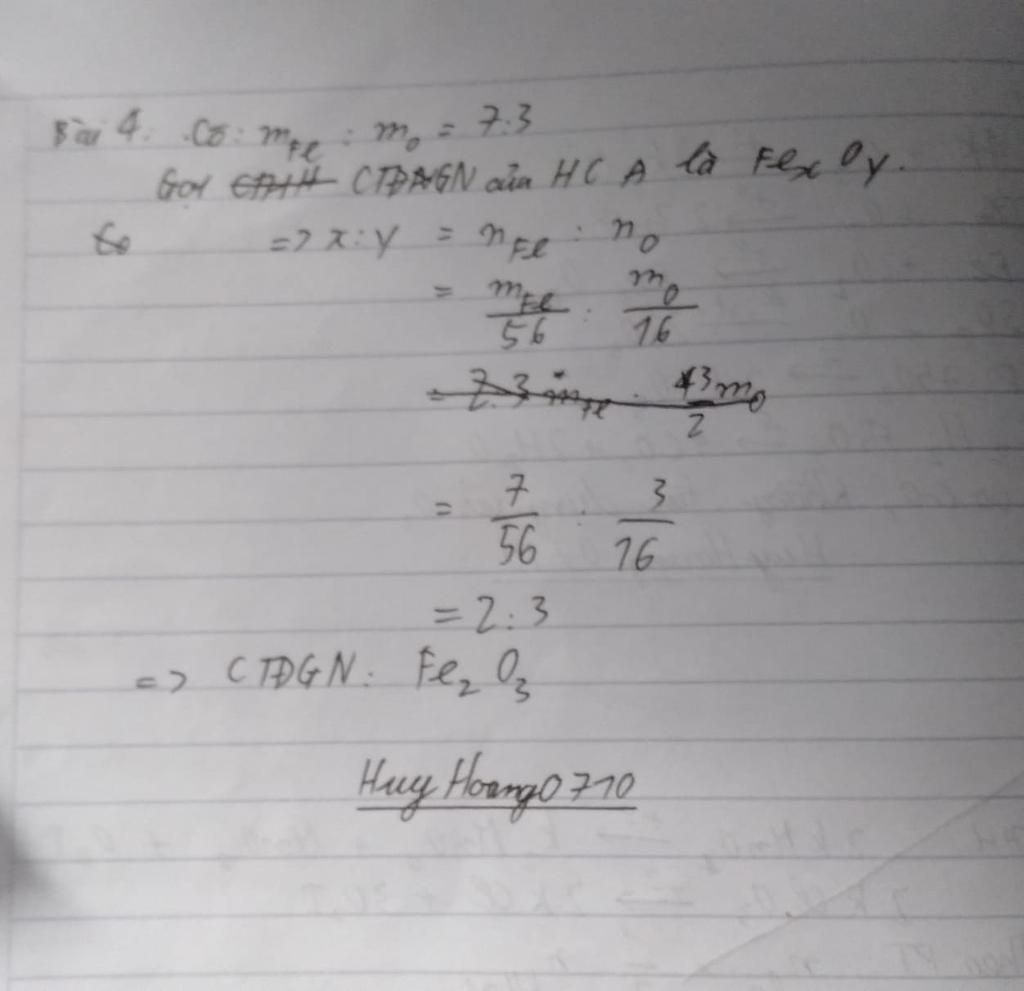 Bài 4. Có: mFe : mO = 7:3
Gọi CTHH CTĐGN của HC A là FexOy.
=> x:y = nFe : nO
= mFe/56 : mO/16
= 7/56 : 3/16
= 2:3
=> CTĐGN: Fe2O3
HuyHoang0710